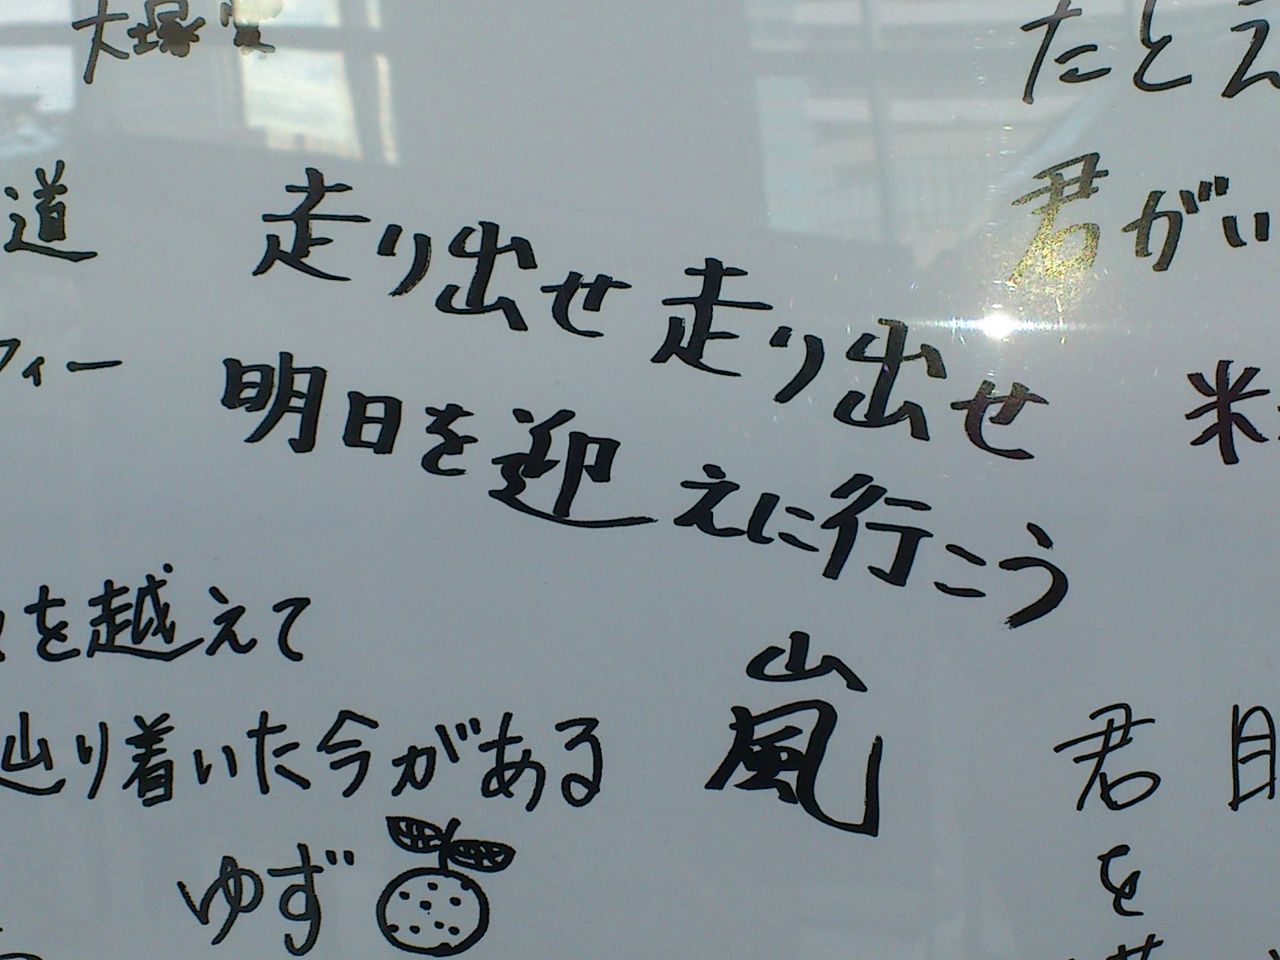 大塚愛
道
フィー
走り出せ 走り出せ
明日を迎えに行こう
嵐
を越えて
辿り着いた今がある
ゆず
たとえ
君がい
米
君
目
を